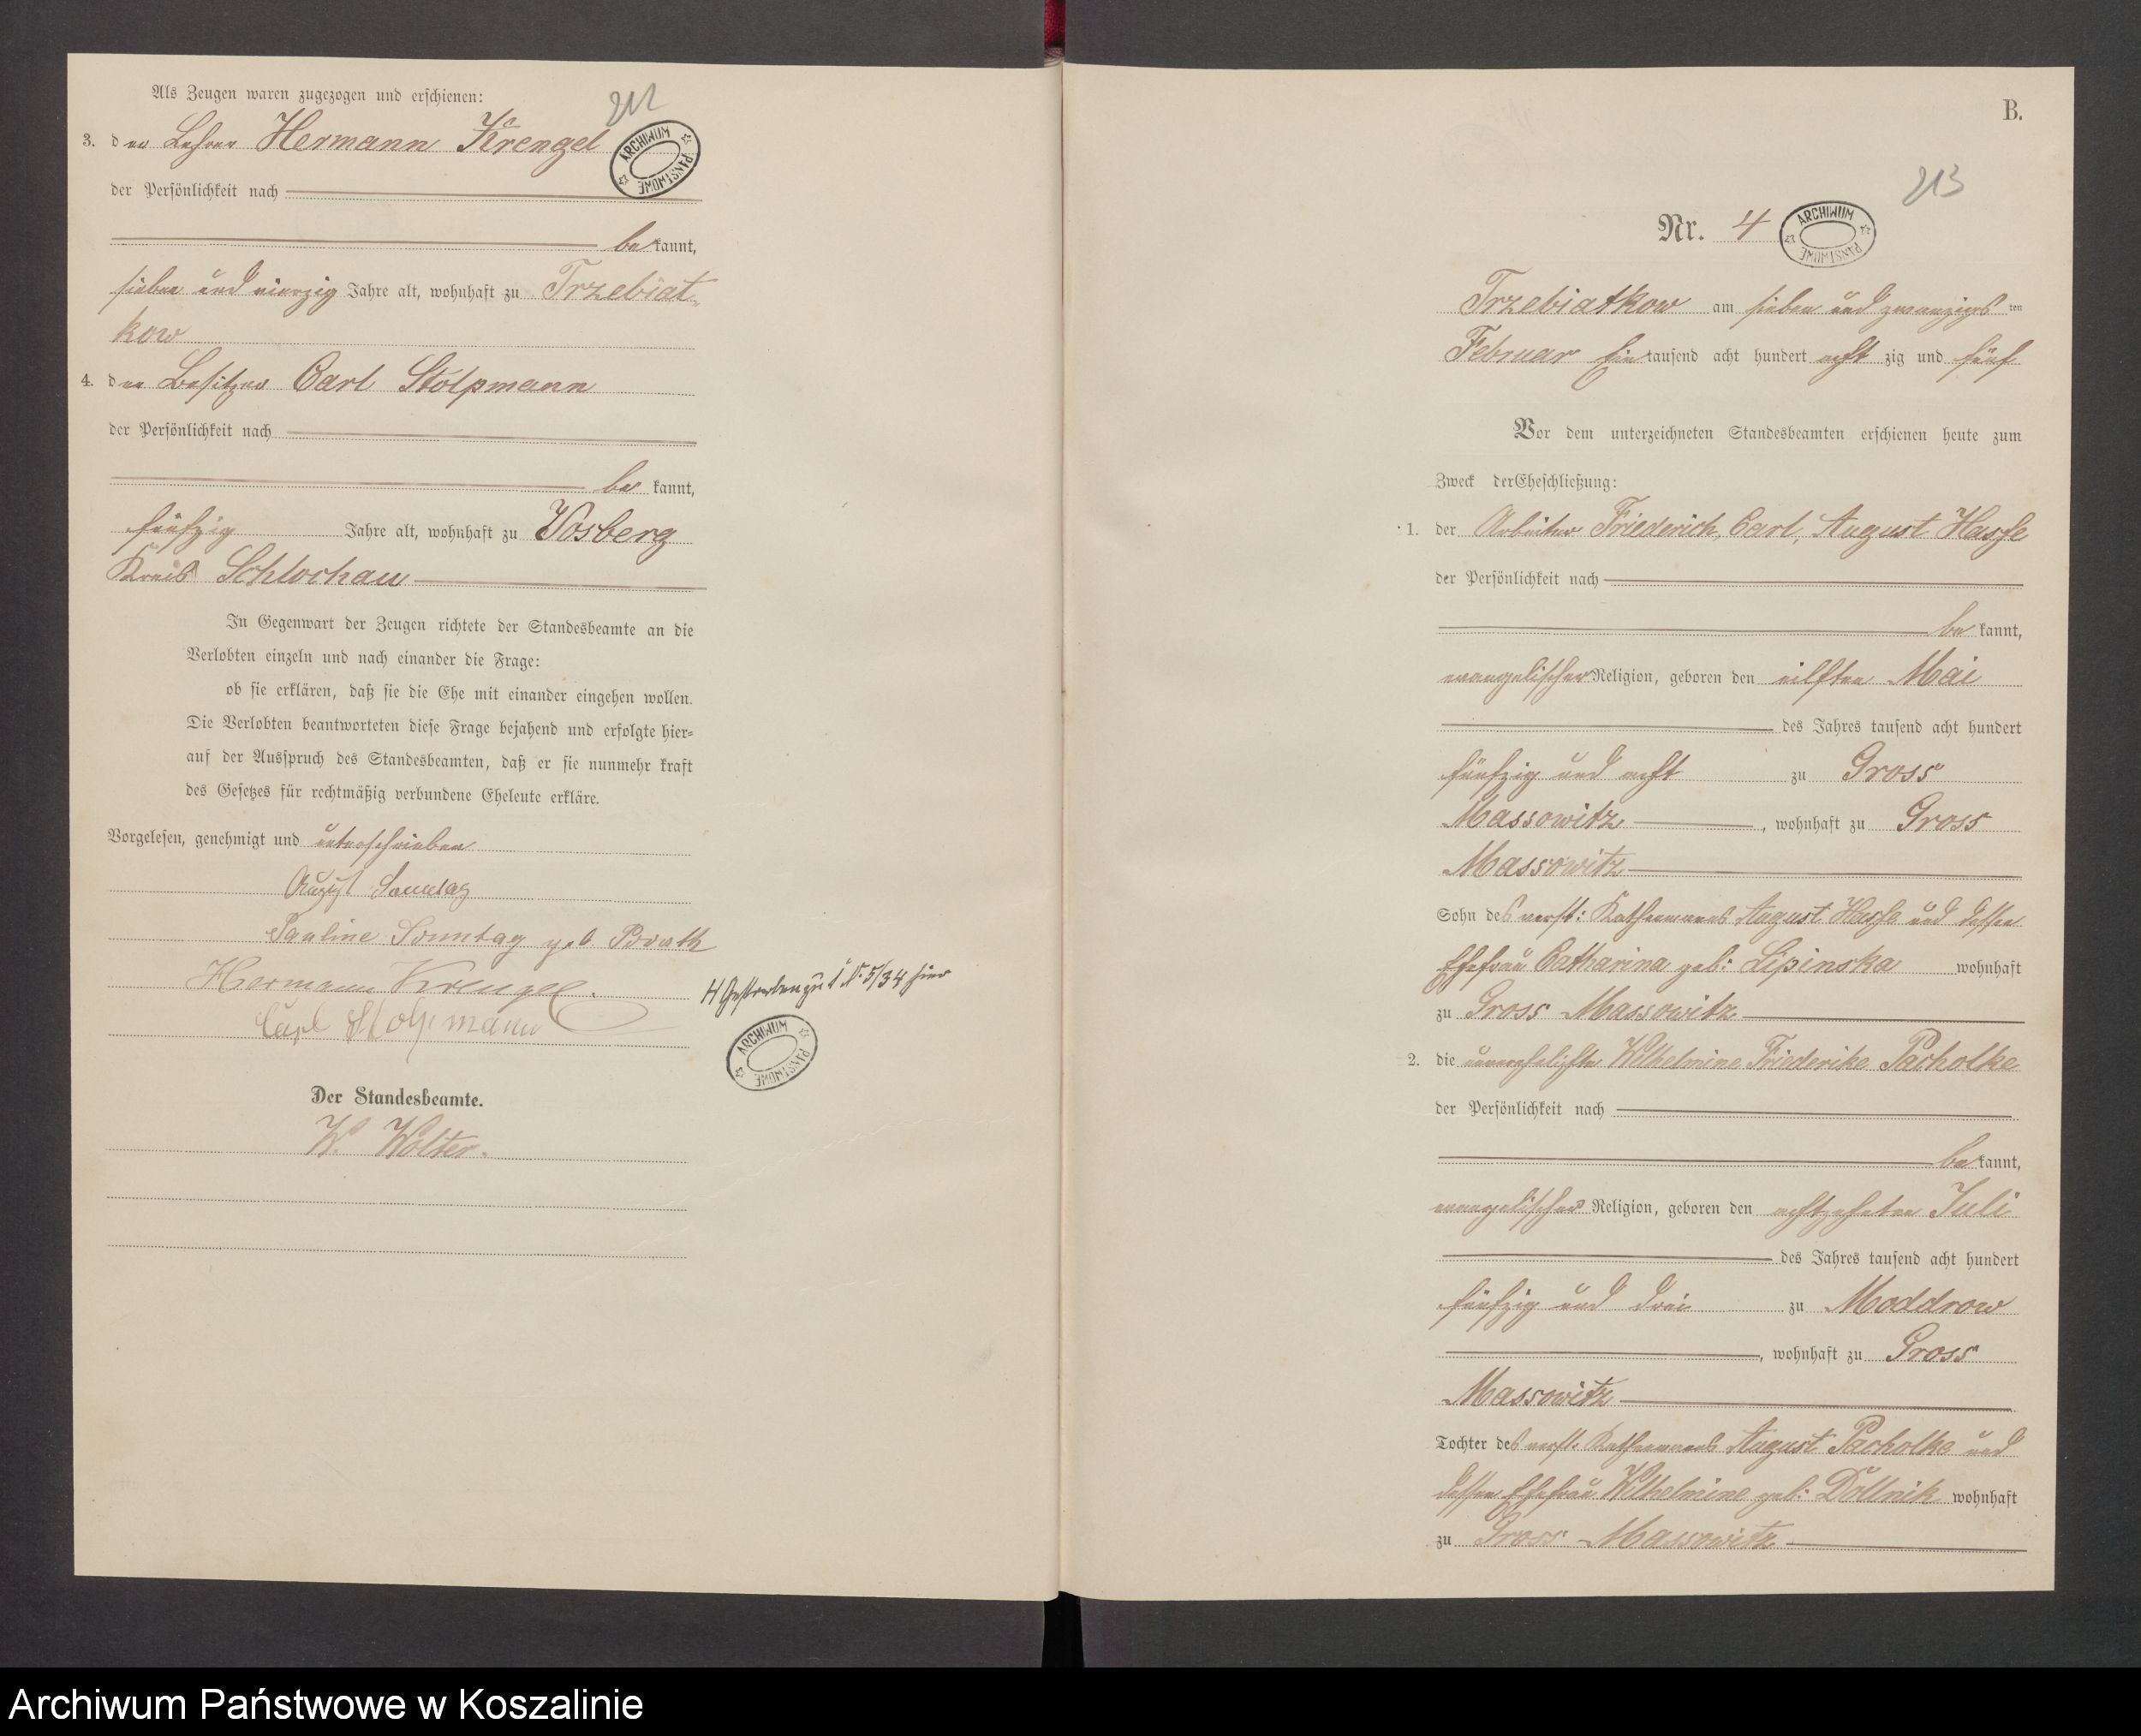 Als Zeugen waren zugezogen und erschienen:
212
ARCHIWUM PAŃSTWOWE
3. der Lehrer Hermann Krengel
der Persönlichkeit nach
be kannt,
sieben und vierzig Jahre alt, wohnhaft zu Trzebiat-
kow
4. der Besitzer Carl Stolpmann
der Persönlichkeit nach
be kannt,
fünfzig Jahre alt, wohnhaft zu Vosberg
Kreis Schlochau
In Gegenwart der Zeugen richtete der Standesbeamte an die
Verlobten einzeln und nach einander die Frage:
ob sie erklären, daß sie die Ehe mit einander eingehen wollen.
Die Verlobten beantworteten diese Frage bejahend und erfolgte hier-
auf der Ausspruch des Standesbeamten, daß er sie nunmehr kraft
des Gesetzes für rechtmäßig verbundene Eheleute erkläre.
Vorgelesen, genehmigt und unterschrieben
August Sonntag
Pauline Sonntag geb
Hermann Krengel.
Carl Stolpmann
H Gestorben zu 1 Nr. 5/34 hier
ARCHIWUM PAŃSTWOWE
Der Standesbeamte.
W. Wolter.
B.
213
Nr. 4
ARCHIWUM PAŃSTWOWE
Trzebiatkow am sieben und zwanzigs ten
Februar Ein tausend acht hundert acht zig und fünf
Vor dem unterzeichneten Standesbeamten erschienen heute zum
Zweck der Eheschließung:
1. der Arbeiter Friederich, Carl, August Hasse
der Persönlichkeit nach
be kannt,
evangelischer Religion, geboren den eilften Mai
des Jahres tausend acht hundert
fünfzig und acht zu Gross
Massowitz, wohnhaft zu Gross
Massowitz
Sohn des verst: Kathenmanns August Hasse und dessen
Ehefrau Catharina geb: Lipinska wohnhaft
zu Gross Massowitz
2. die unverehelichte Wilhelmine Friederike Pacholke
der Persönlichkeit nach
be kannt,
evangelischer Religion, geboren den achtzehnten Juli
des Jahres tausend acht hundert
fünfzig und drei zu Moddrow
, wohnhaft zu Gross
Massowitz
Tochter des verst: Kathenmanns August Pacholke und
dessen Ehefrau Wilhelmine geb: Döllnik wohnhaft
zu Gross Massowitz
Archiwum Państwowe w Koszalinie